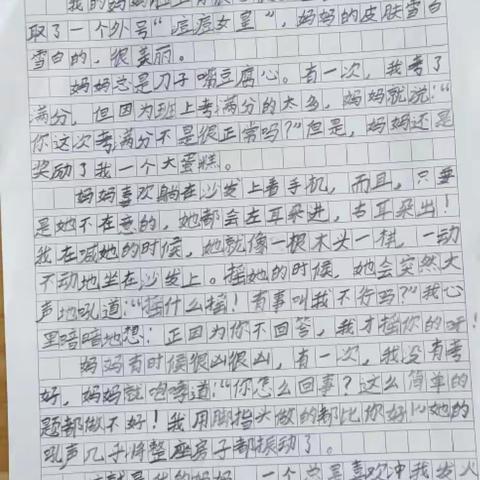 我的妈妈
取了一个外号“痘痘女皇”，妈妈的皮肤雪白
雪白的，很美丽。
妈妈总是刀子嘴豆腐心。有一次，我考了
满分，但因为班上考满分的太多，妈妈就说：“
你这次考满分不是很正常吗？”但是，妈妈还是
奖励了我一个大蛋糕。
妈妈喜欢躺在沙发上看手机，而且，只要
是她不在意的，她都会左耳朵进，右耳朵出！
我在喊她的时候，她就像一根木头一样，一动
不动地坐在沙发上。摇她的时候，她会突然大
声地吼道：“摇什么摇！有事叫我不行吗？”我心
里暗暗地想：正因为你不回答，我才摇你的呀！
妈妈有时候很凶很凶，有一次，我没有考
好，妈妈就咆哮道：“你怎么回事？这么简单的
题都做不好！我用脚指头做的都比你好！”她的
吼声几乎将整座房子都振动了。
这就是我的妈妈，一个总是喜欢冲我发火